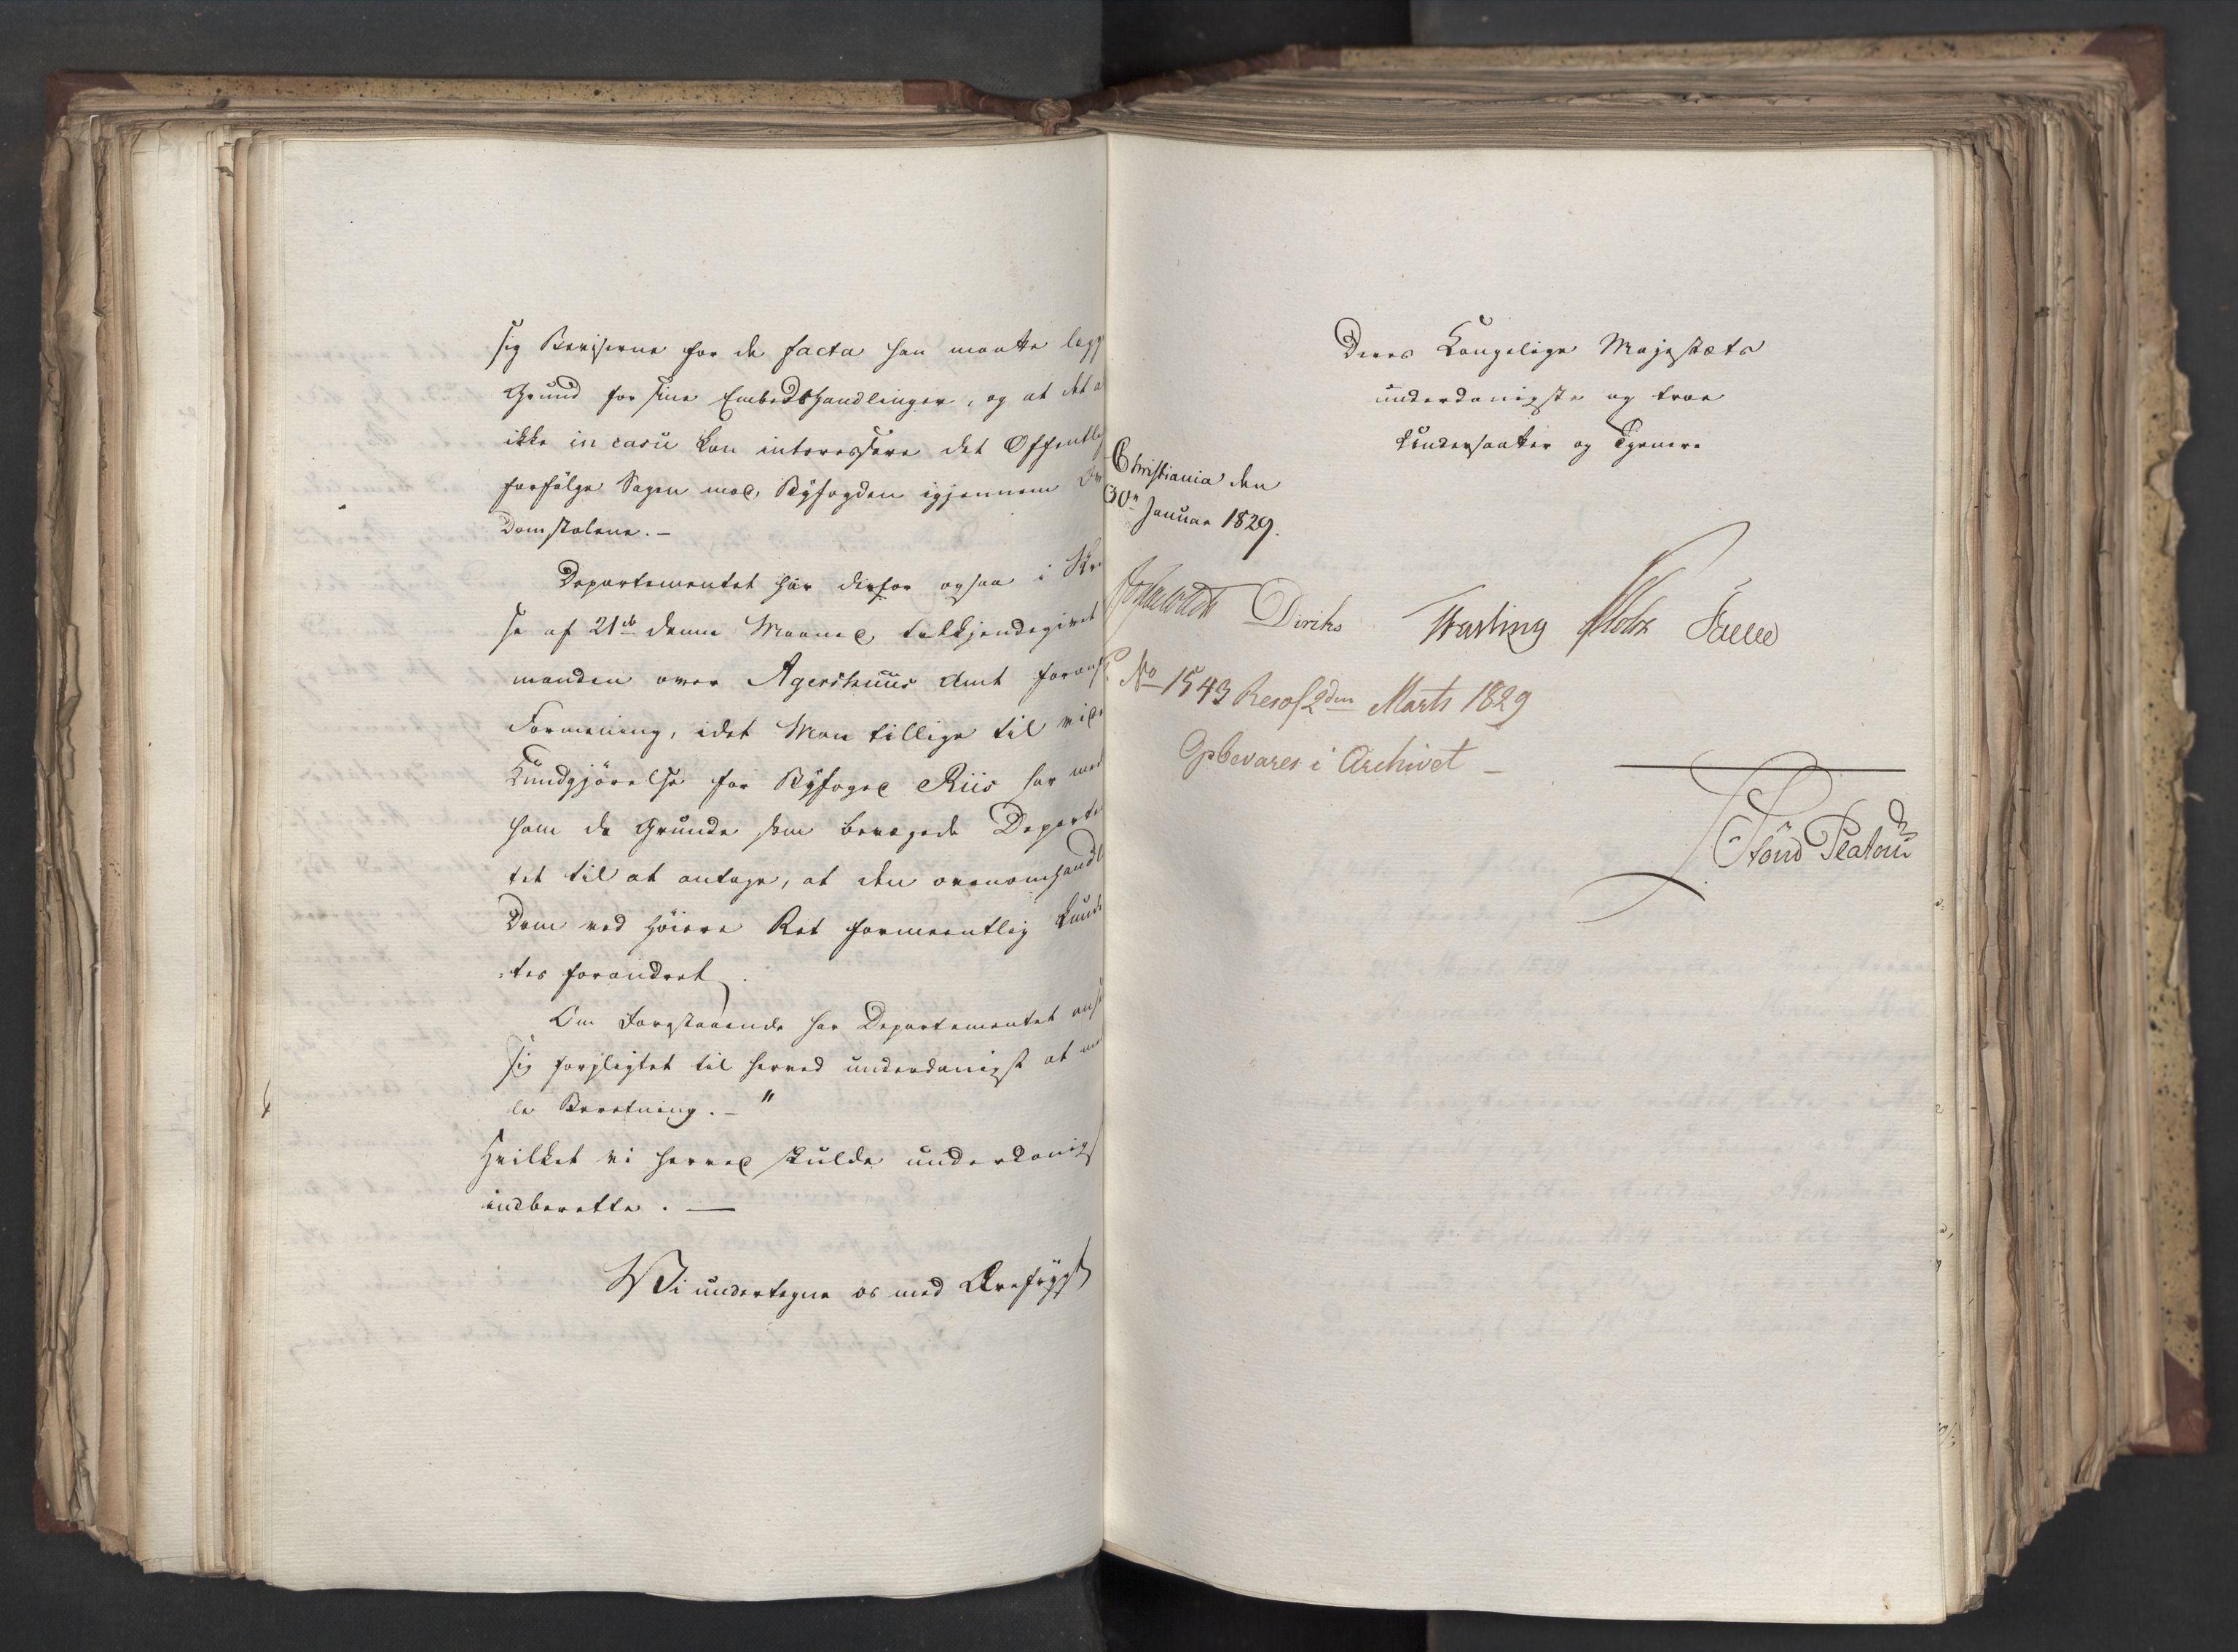 sig Beviserne for de facta han maatte legg
Grund for sine Embedshandlinger, og at det a
ikke in casu kan interessere det Offentlig
forfølge Sagen mod Byfogden igjennem
Domstolene. –
Departementet har derfor ogsaa i Skr
se af 21de denne Maaned tilkjendegivet
manden over Agershuus Amt foranf
Formening, idet Man tillige til vid
Kundgjørelse for Byfoged Riis har med
ham de Grunde som bevægede Departe
tet til at antage, at den ovenomhandl
Dom ved høiere Ret formeentlig kund
tes forandret.
Om Forestaaende har Departementet ans
sig forpligtet til herved underdanigst at
de Beretning. – "
Hvilket vi herved skulde underdanigs
indberette. —
Vi undertegne os med Ærefrygt
Deres Kongelige Majestæts
underdanigste og troe
Undersaatter og Tjenere
Christiania den
30te Januar 1829.
Diriks Krog
No 1543 Resol 2den Marts 1829
Opbevares i Archivet –